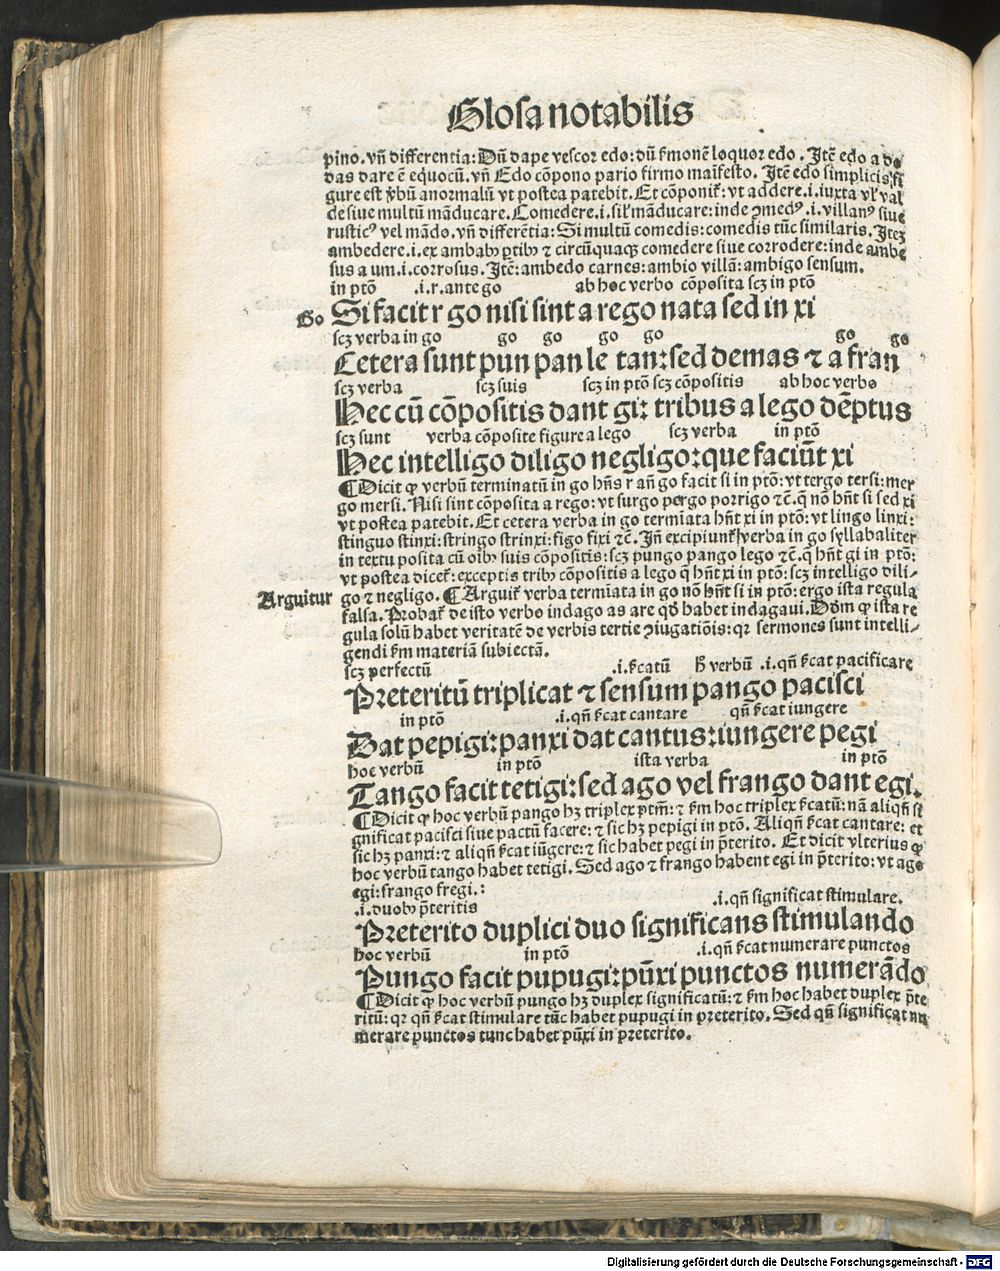 Glosa notabilis
pino. vñ differentia: Dũ dape vescor edo: dũ ẜmonẽ loquor edo. Itẽ edo a do
das dare ẽ equocũ. vñ Edo cõpono pario firmo maĩfesto. Itẽ edo simplicis fi
gure est ꝟbũ anormalũ vt postea patebit. Et cõponit᷑: vt addere .i. iuxta vł val
de siue multũ mãducare. Comedere .i. sił mãducare: inde ꝯmedꝰ .i. villanꝰ siue
rusticꝰ vel mãdo. vñ differẽtia: Si multũ comedis: comedis tũc similaris. Itez
ambedere .i. ex ambabꝰ ꝑtibꝰ ⁊ circũquaqꝫ comedere siue corrodere: inde ambe
sus a um .i. corrosus. Itẽ: ambedo carnes: ambio villã: ambigo sensum.
in ptõ .i. r. ante go ab hoc verbo cõposita scꝫ in ptõ
Go Si facit r go nisi sint a rego nata sed in xi
scꝫ verba in go go go go go go go
Cetera sunt pun pan le tan: sed demas ⁊ a fran
scꝫ verba scꝫ suis scꝫ in ptõ scꝫ cõpositis ab hoc verbo
Hec cũ cõpositis dant gi: tribus a lego dẽptus
scꝫ sunt verba cõposite figure a lego scꝫ verba in ptõ
Hec intelligo diligo negligo: que faciũt xi
¶ Dicit ꝙ verbũ terminatũ in go hñs r añ go facit si in ptõ: vt tergo tersi: mer
go mersi. Nisi sint cõposita a rego: vt surgo pergo porrigo ⁊c̃. q̃ nõ hñt si sed xi
vt postea patebit. Et cetera verba in go termĩata hñt xi in ptõ: vt lingo linxi:
stinguo stinxi: stringo strinxi: figo fixi ⁊c̃. Iñ excipiunt᷑ verba in go syllabaliter
in textu posita cũ oĩbꝰ suis cõpositis: scꝫ pungo pango lego ⁊c̃. q̃ hñt gi in ptõ:
vt postea dicet᷑: exceptis tribꝰ cõpositis a lego q̃ hñt xi in ptõ: scꝫ intelligo dili-
Arguitur go ⁊ negligo. ¶ Arguit᷑ verba termĩata in go nõ hñt si in ptõ: ergo ista regula
falsa. Probat᷑ de isto verbo indago as are qđ habet indagaui. Dõm ꝙ ista re
gula solũ habet veritatẽ de verbis tertie ꝯiugatiõis: qꝛ sermones sunt intelli-
gendi ẜm materiã subiectã.
scꝫ perfectũ .i. ẜcatũ ħ verbũ .i. qñ ẜcat pacificare
Preteritũ triplicat ⁊ sensum pango pacisci
in ptõ .i. qñ ẜcat cantare qñ ẜcat iungere
Dat pepigi: panxi dat cantus: iungere pegi
hoc verbũ in ptõ ista verba in ptõ
Tango facit tetigi: sed ago vel frango dant egi.
¶ Dicit ꝙ hoc verbũ pango hꝫ triplex ptm̃: ⁊ ẜm hoc triplex ẜcatũ: nã aliqñ si
gnificat pacisci siue pactũ facere: ⁊ sic hꝫ pepigi in ptõ. Aliqñ ẜcat cantare: et
sic hꝫ panxi: ⁊ aliqñ ẜcat iũgere: ⁊ sic habet pegi in p̃terito. Et dicit vlterius ꝙ
hoc verbũ tango habet tetigi. Sed ago ⁊ frango habent egi in p̃terito: vt ago
egi: frango fregi.:
.i. duobꝰ p̃teritis .i. qñ significat stimulare.
Preterito duplici duo significans stimulando
hoc verbũ in ptõ .i. qñ ẜcat numerare punctos
Pungo facit pupugi: pũxi punctos numerãdo
¶ Dicit ꝙ hoc verbũ pungo hꝫ duplex significatũ: ⁊ ẜm hoc habet duplex p̃te
ritũ: qꝛ qñ ẜcat stimulare tũc habet pupugi in preterito. Sed qñ significat nu
merare punctos tunc habet pũxi in preterito.
Digitalisierung gefördert durch die Deutsche Forschungsgemeinschaft - DFG